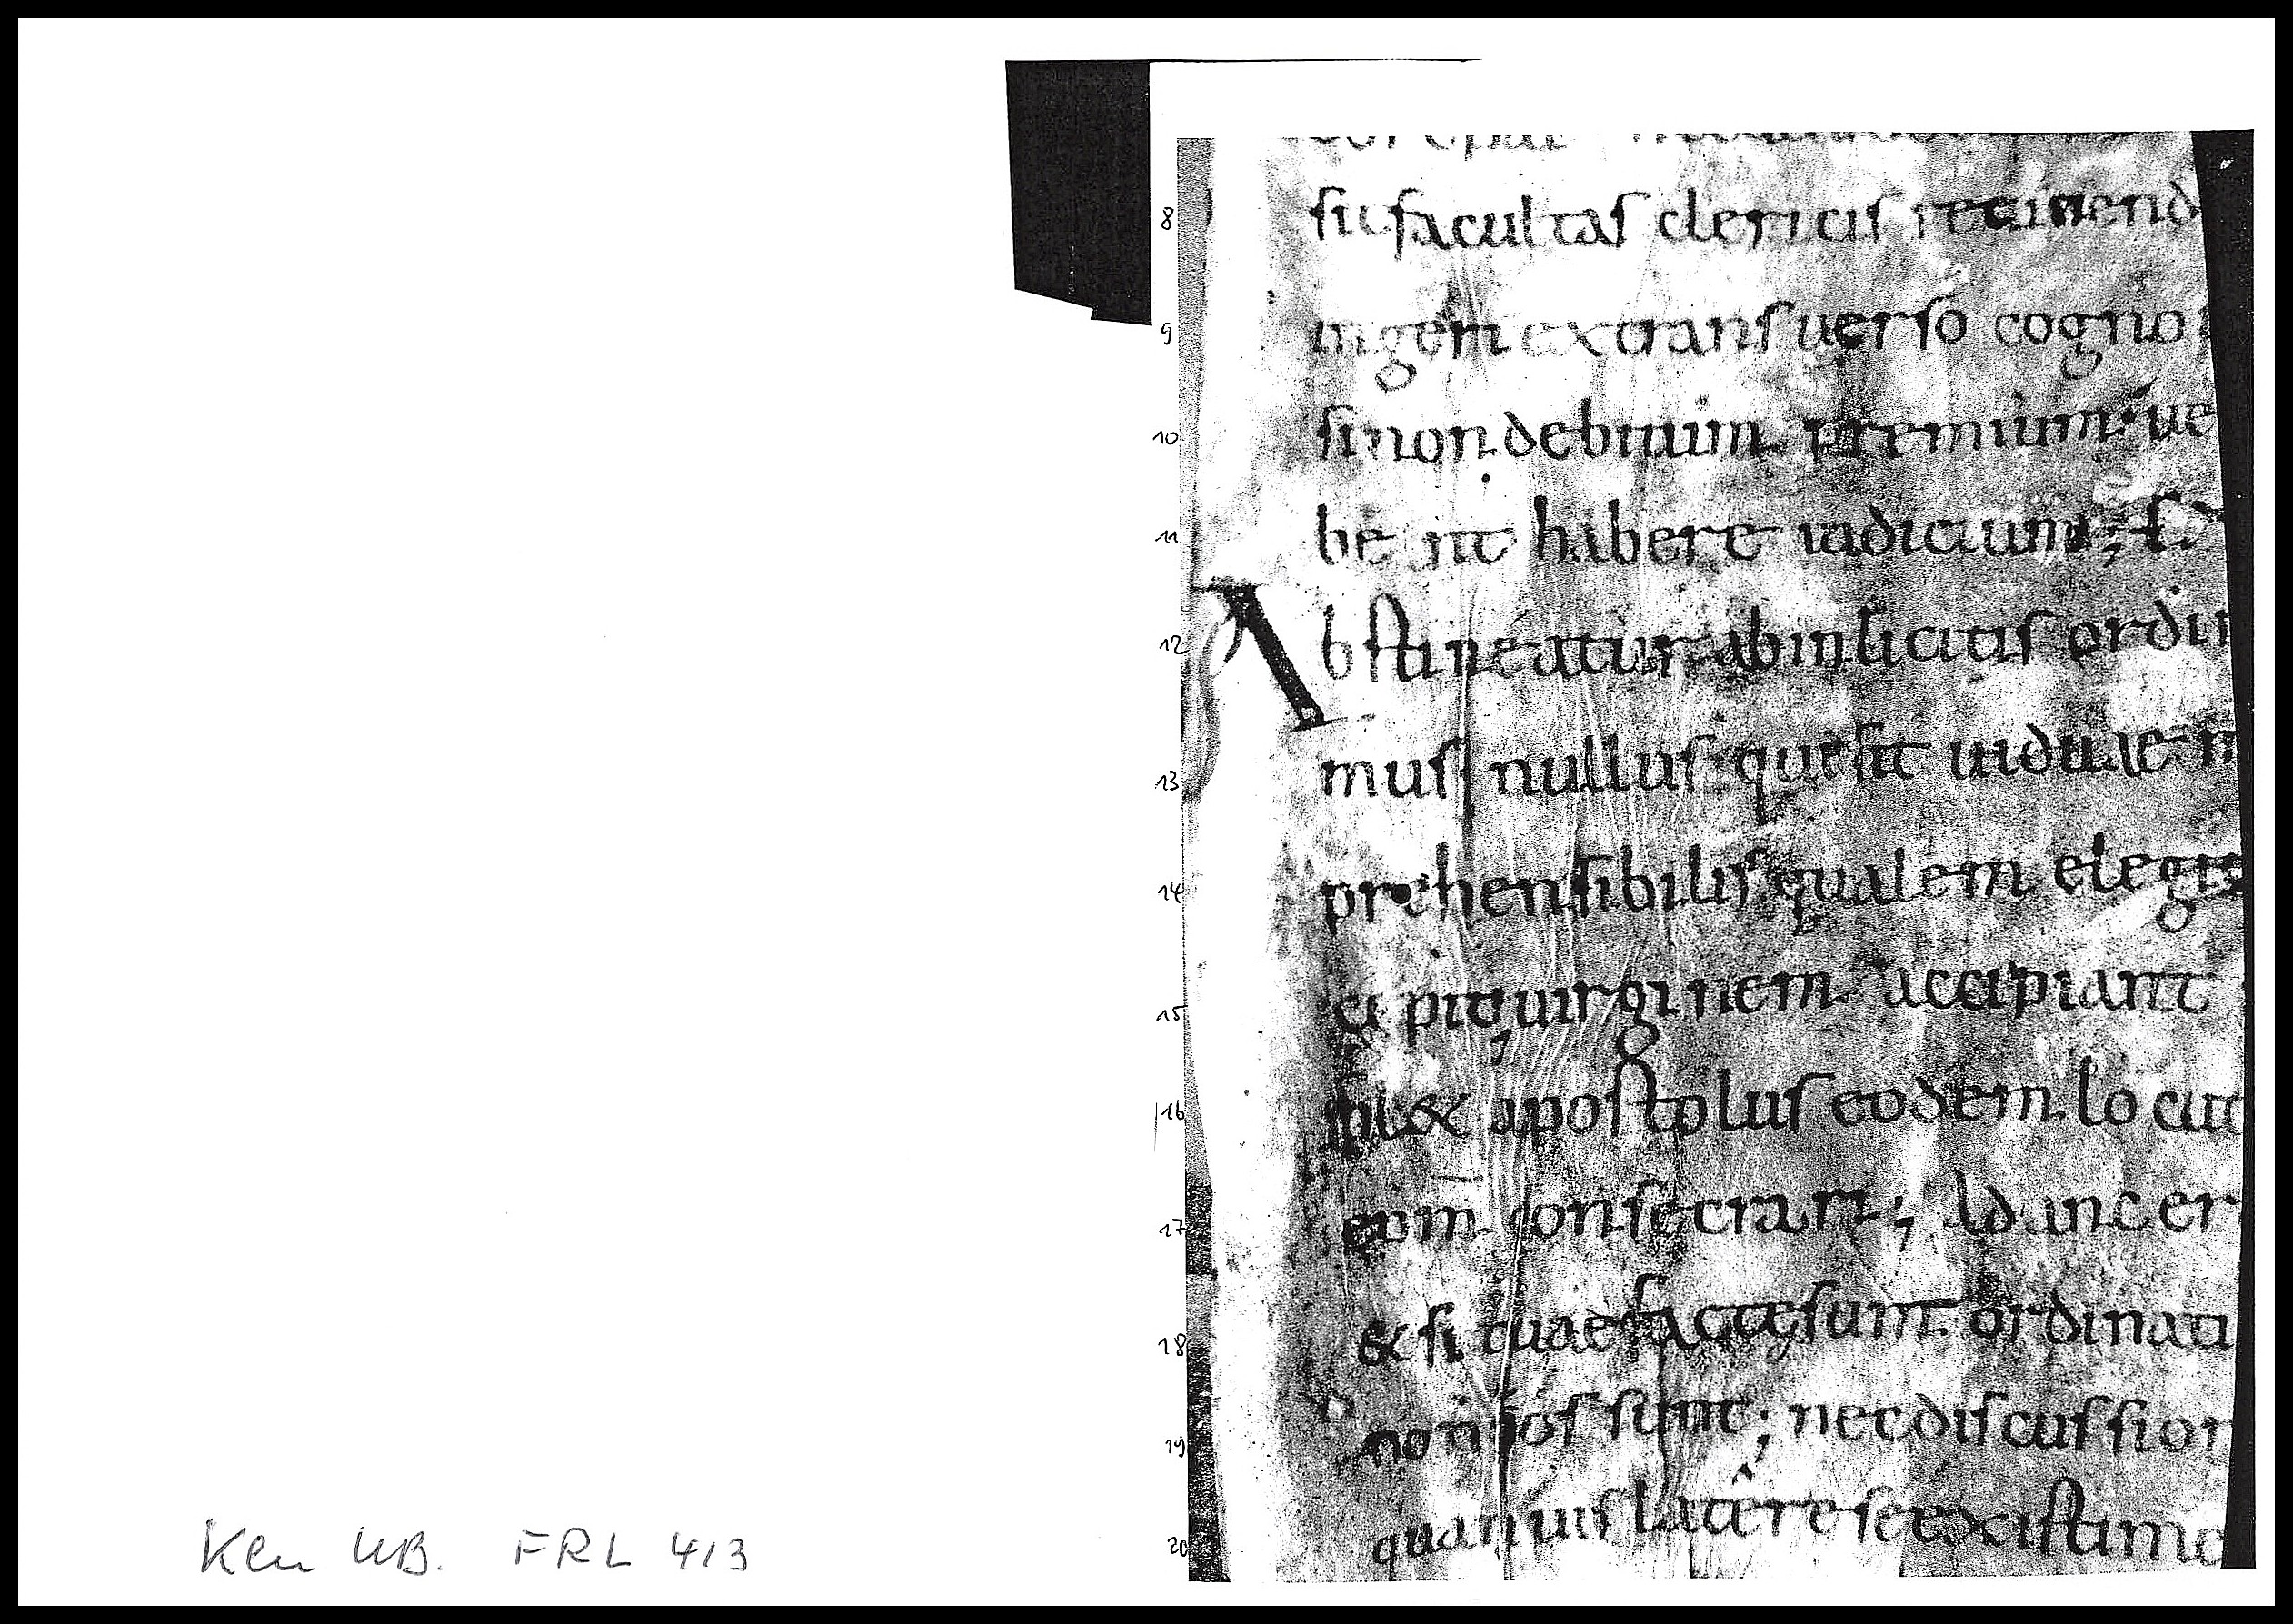 8 sit facultas clericis renitend
9 ingeri ex transuerso cogno
10 si non debitum premium ue
11 be rit habere iudicium; S;
12 Abstineatur ab inlicitis ordin
13 mus nullus qui sit uiduae m
14 prehensibilis qualem elegit
15 ci pit uirginem accipiant
16 & apostolus eodem locut
17 eum consecrari; Ad incer
18 & si tuae factę sunt ordinati
19 non ios sint; nec discussion
20 quanuis latêre se existime
Ken UB. FRL 413